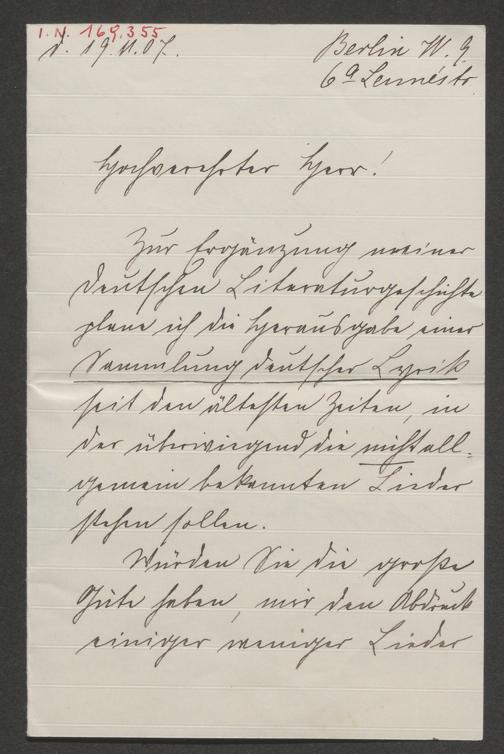 I.N. 169.355
d. 19.11.07.
Berlin W. 9
6a Lennéstr.
Hochverehrter Herr!
Zur Ergänzung meiner
Deutschen Literaturgeschichte
plane ich die Herausgabe einer
Sammlung deutscher Lyrik
seit den ältesten Zeiten, in
der überwiegend die nicht all-
gemein bekannten Lieder
stehen sollen.
Würden Sie die große
Güte haben, mir den Abdruck
einiger weniger Lieder